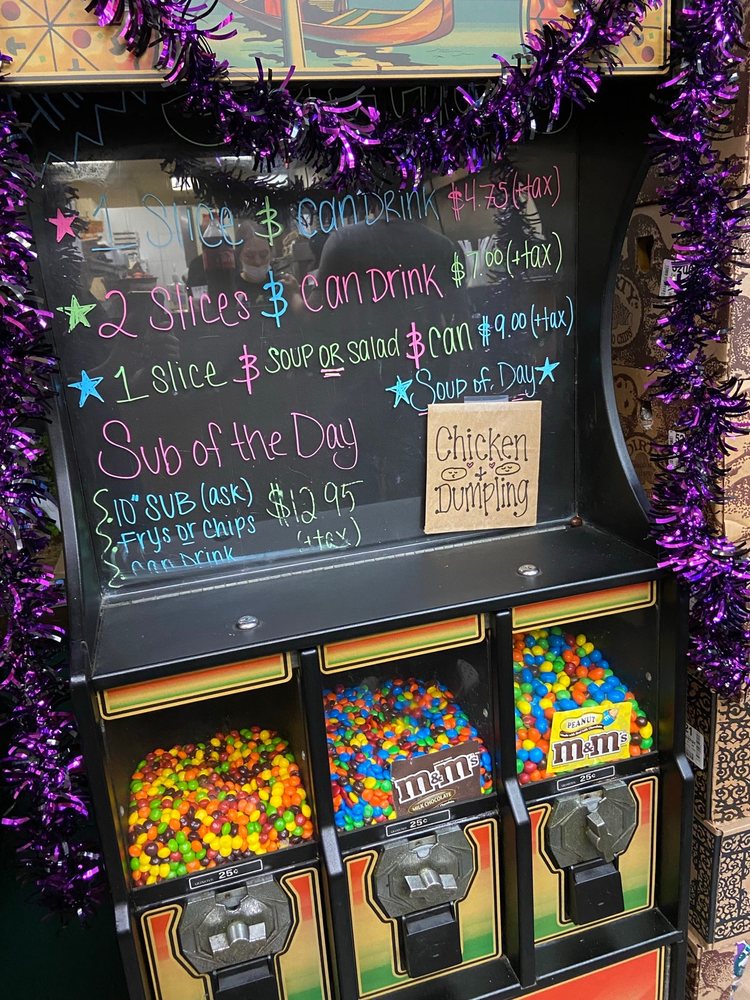 1 Slice & Can Drink $4.75 (+tax)
2 Slices & Can Drink $7.00 (+tax)
1 Slice & Soup or Salad & Can $9.00 (+tax)
Soup of Day
Sub of the Day
10" Sub (ask)
Frys or Chips
Can Drink
$12.95
(+tax)
Chicken
+
Dumpling
M&M's
MILK CHOCOLATE
PEANUT
M&M's
25¢
25¢
25¢